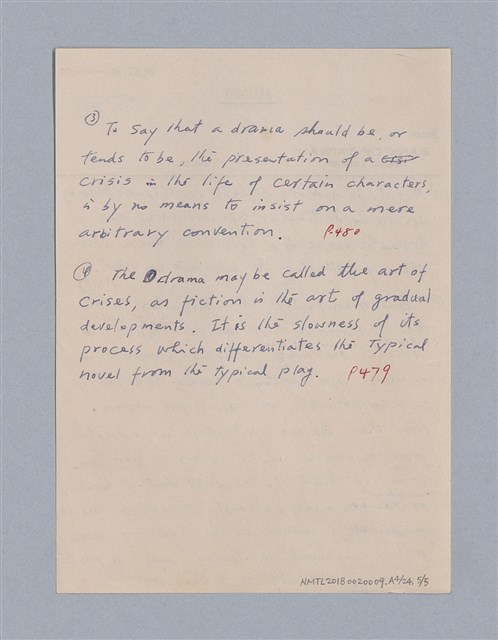 ③ To say that a drama should be, or
tends to be, the presentation of a
Crisis in the life of certain characters,
is by no means to insist on a mere
arbitrary convention. P.480
④ The Drama may be called the art of
Crises, as fiction is the art of gradual
developments. It is the slowness of its
process which differentiates the typical
novel from the typical play. P479
NMTL20180020009.A4/24.5/5